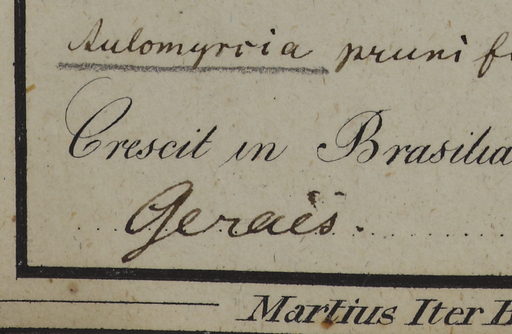 Aulomyrcia pruni f
Crescit in Brasilia
Geraës.
Martius Iter B